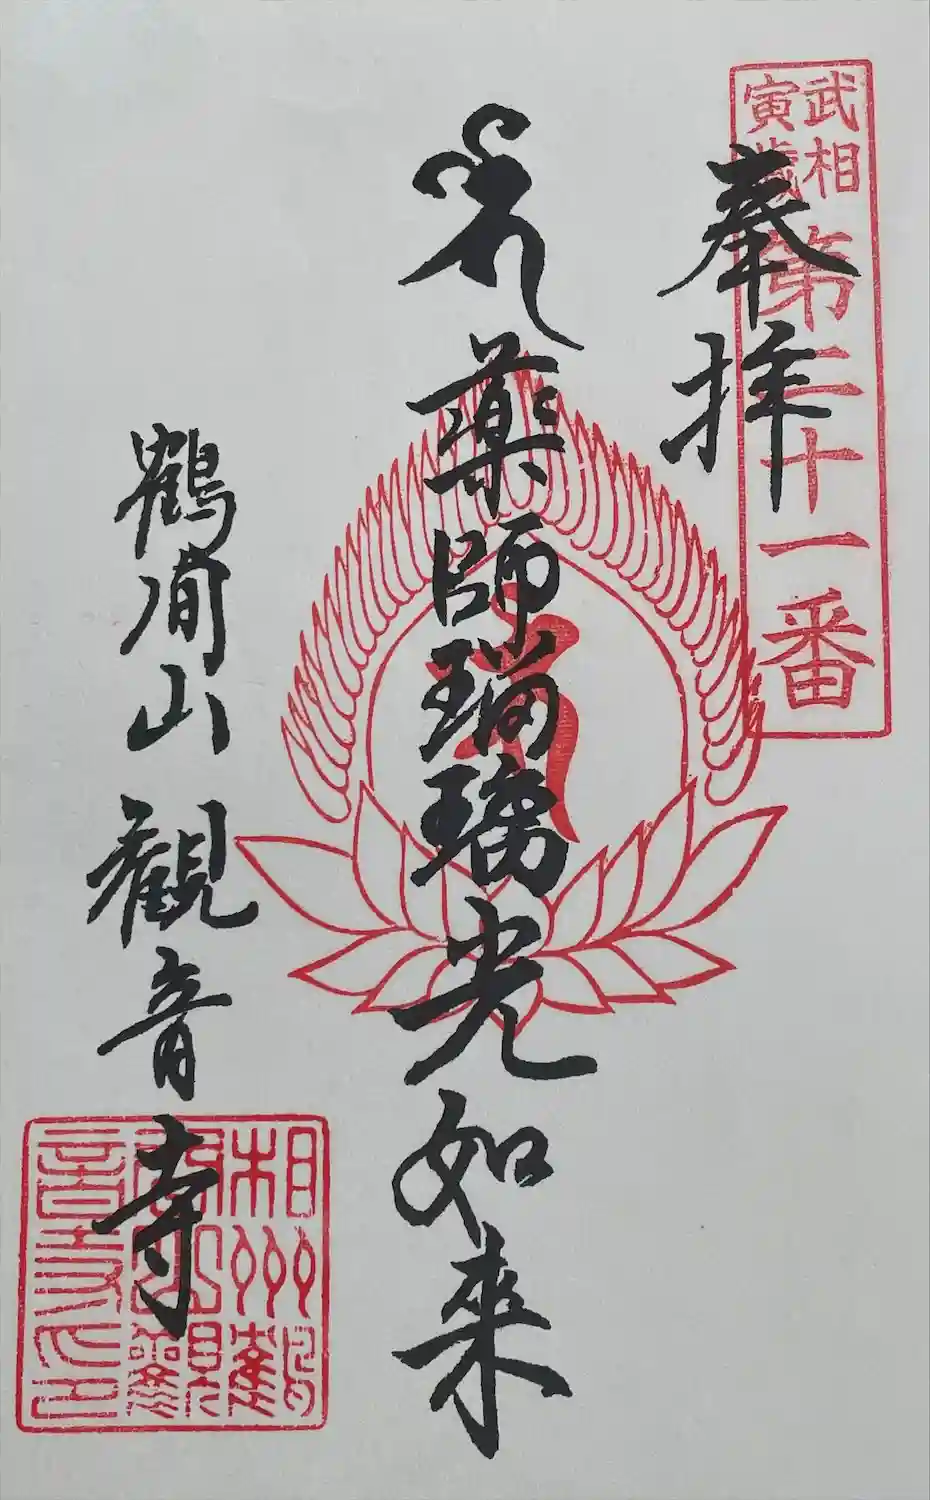 武相
寅歳
第二十一番
奉拝
薬師瑠璃光如来
鶴間山 観音寺
相州鶴
間山観
音寺之印